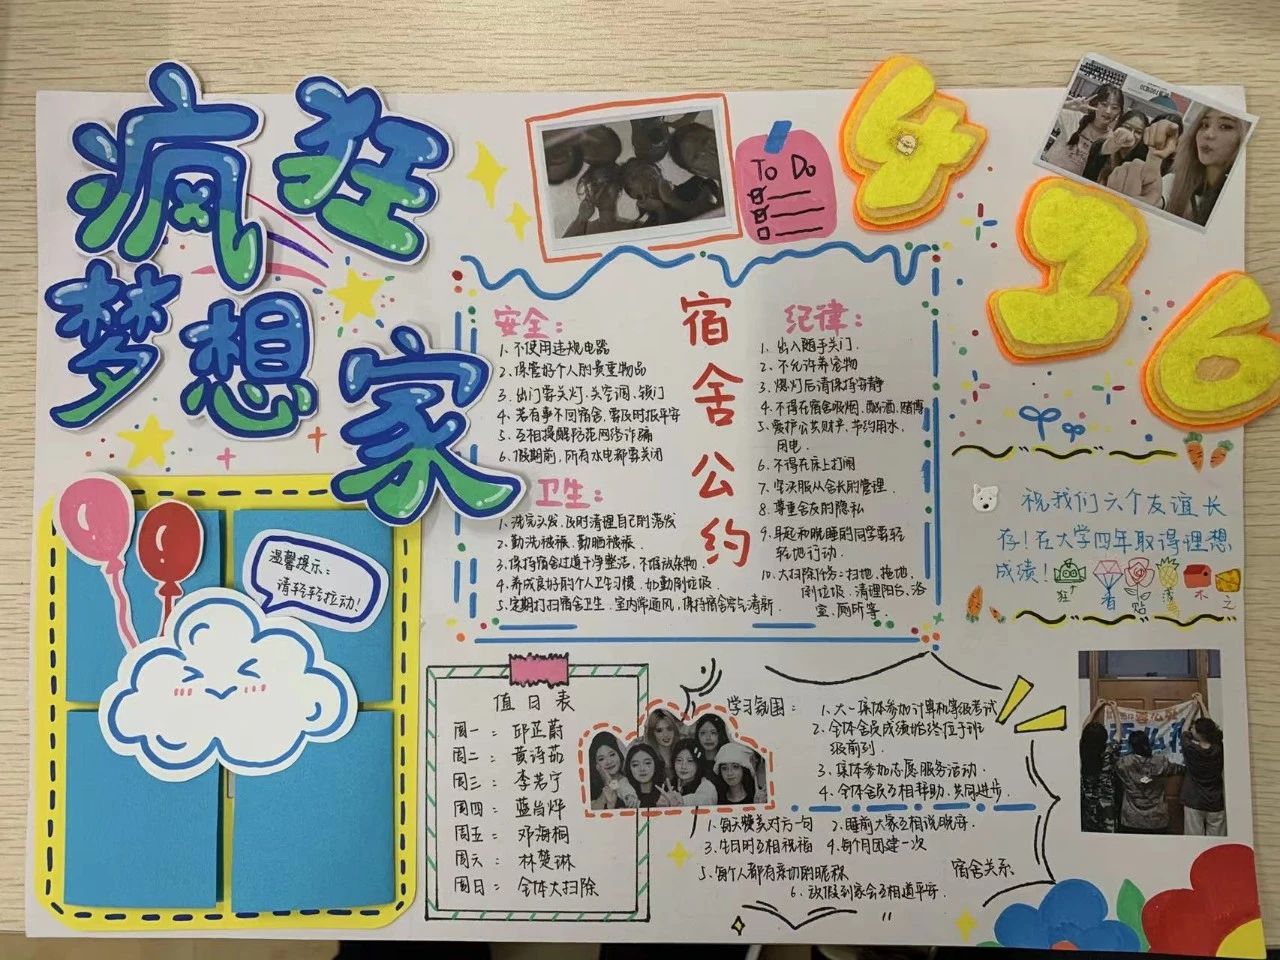 疯狂
梦想家
To Do
4
2
6
温馨提示：
请轻轻拉动！
宿舍公约
安全：
1、不使用违规电器
2、保管好个人的贵重物品
3、出门要关灯、关空调、锁门
4、若有事不回宿舍，要及时报平安
5、互相提醒防范网络诈骗
6、假期前，所有水电都要关闭
卫生：
1、洗完头发，及时清理自己的落发
2、勤洗被褥，勤晒被褥、
3、保持宿舍过道干净整洁，不堆放杂物、
4、养成良好的个人卫生习惯，如勤倒垃圾
5、定期打扫宿舍卫生，室内常通风，保持宿舍空气清新、
纪律：
1、出入随手关门、
2、不允许养宠物
3、熄灯后请保持安静
4、不得在宿舍吸烟、酗酒、赌博
5、爱护公共财产，节约用水、
用电、
6、不得在床上打闹
7、坚决服从舍长的管理、
8、尊重舍友的隐私
9、早起和晚睡的同学要轻
轻地行动、
10、大扫除任务：扫地、拖地、
倒垃圾、清理阳台、浴
室、厕所等、
祝我们六个友谊长
存！在大学四年取得理想
成绩！
值日表
周一：邱芷蔚
周二：黄诗茹
周三：李若宁
周四：蓝尚烨
周五：邓海桐
周六：林楚琳
周日：全体大扫除
学习氛围：
1、大一集体参加计算机等级考试
2、全体舍员成绩始终位于班
级前列、
3、集体参加志愿服务活动、
4、全体舍员互相帮助、共同进步、
1、每天赞美对方一句 2、睡前大家互相说晚安、
3、生日时互相祝福 4、每个月团建一次
5、每个人都有亲切的昵称
6、放假到家会互相道平安
宿舍关系